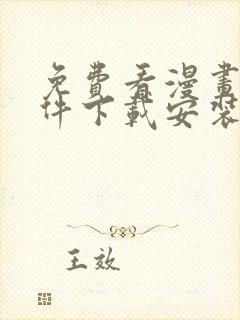 免費看漫畫
件下載安裝
王效